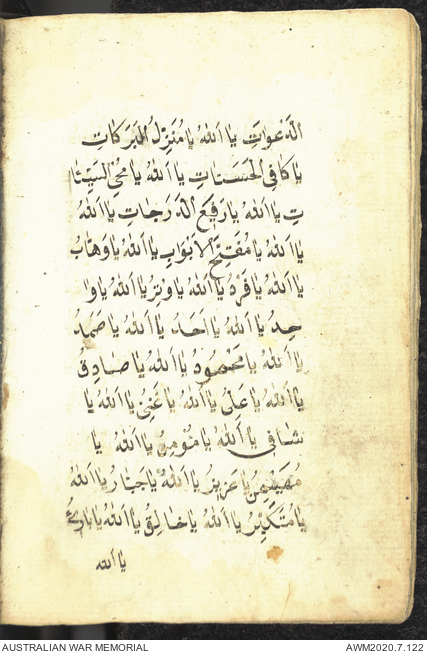 الدَّعْوَاتِ يَا اَللّٰهُ يَا مُنَزِّلُ الْبَرَكَاتِ
يَا كَافِي الْحَسَنَاتِ يَا اَللّٰهُ يَا مُحْيِ السَّيِّئَا
تِ يَا اَللّٰهُ يَا رَفِيعَ الدَّرَجَاتِ يَا اَللّٰهُ
يَا اَللّٰهُ يَا مُفَتِّحَ الْاَبْوَابِ يَا اَللّٰهُ يَا وَهَّابُ
يَا اَللّٰهُ يَا فَرْدُ يَا اَللّٰهُ يَا وِتْرُ يَا اَللّٰهُ يَا وَا
حِدُ يَا اَللّٰهُ يَا اَحَدُ يَا اَللّٰهُ يَا صَمَدُ
يَا اَللّٰهُ يَا مَحْمُودُ يَا اَللّٰهُ يَا صَادِقُ
يَا اَللّٰهُ يَا عَلِيُّ يَا اَللّٰهُ يَا غَنِيُّ يَا اَللّٰهُ يَا
شَافِي يَا اَللّٰهُ يَا مُؤْمِنُ يَا اَللّٰهُ يَا
مُهَيْمِنُ يَا عَزِيزُ يَا اَللّٰهُ يَا جَبَّارُ يَا اَللّٰهُ
يَا مُتَكَبِّرُ يَا اَللّٰهُ يَا خَالِقُ يَا اَللّٰهُ يَا بَارِئُ
يا الله
AUSTRALIAN WAR MEMORIAL
AWM2020.7.122